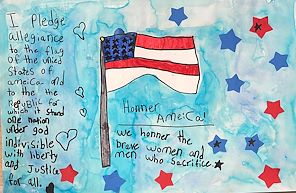 I Pledge
allegiance
to the flag
of the united
States of
ameica and
to the the
Republic for
which it stand
one nation
under god
indivisible
with liberty
and Justice
for all.
Honner
Ameica!
we honner the
brave women and
men who sacrifice